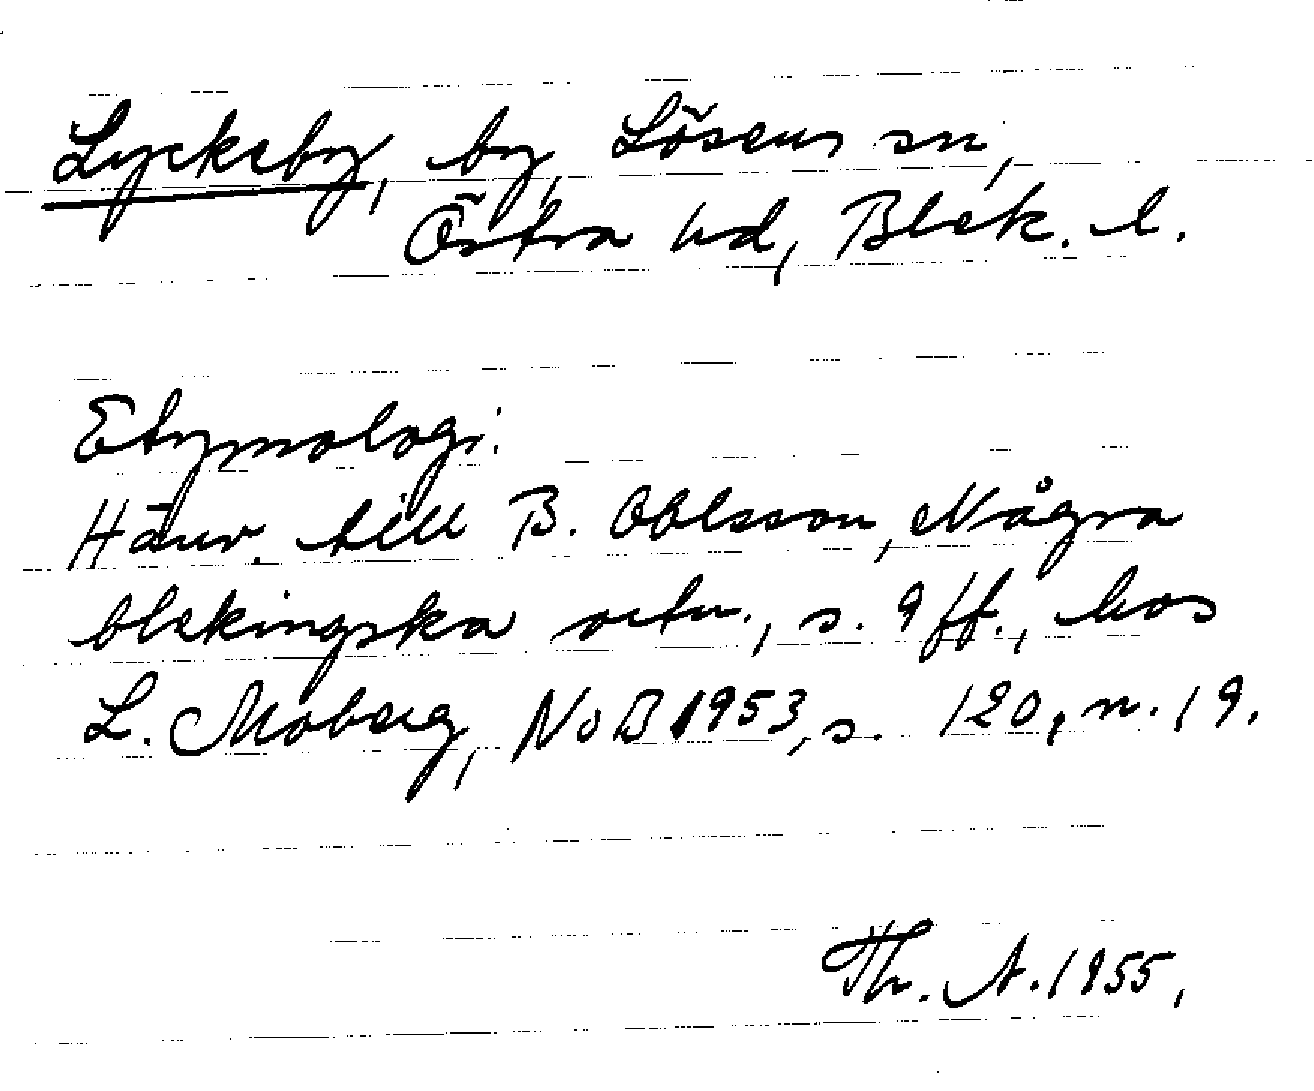 Lyckeby, by, Lösens sn,
Östra hd, Blek. l.
Etymologi:
Hänv. till B. Ohlsson, Några
blekingska ortn., s. 9 ff., hos
L. Moberg, NoB 1953, s. 120, n. 19.
Th. A. 1955.